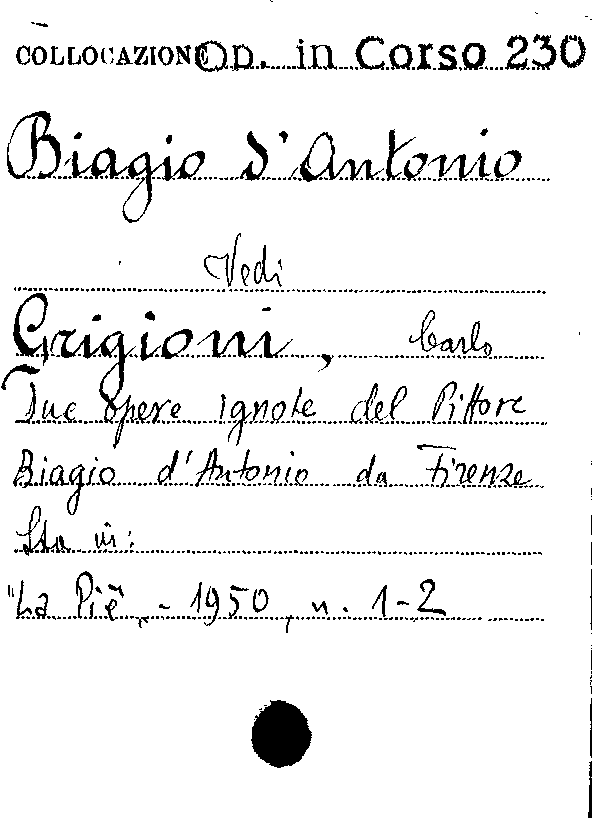 COLLOCAZIONE Op. in Corso 230
Biagio d'Antonio
Vedi
Grigioni, Carlo
Due opere ignote del Pittore
Biagio d'Antonio da Firenze
Sta in:
"La Piê", - 1950, n. 1-2